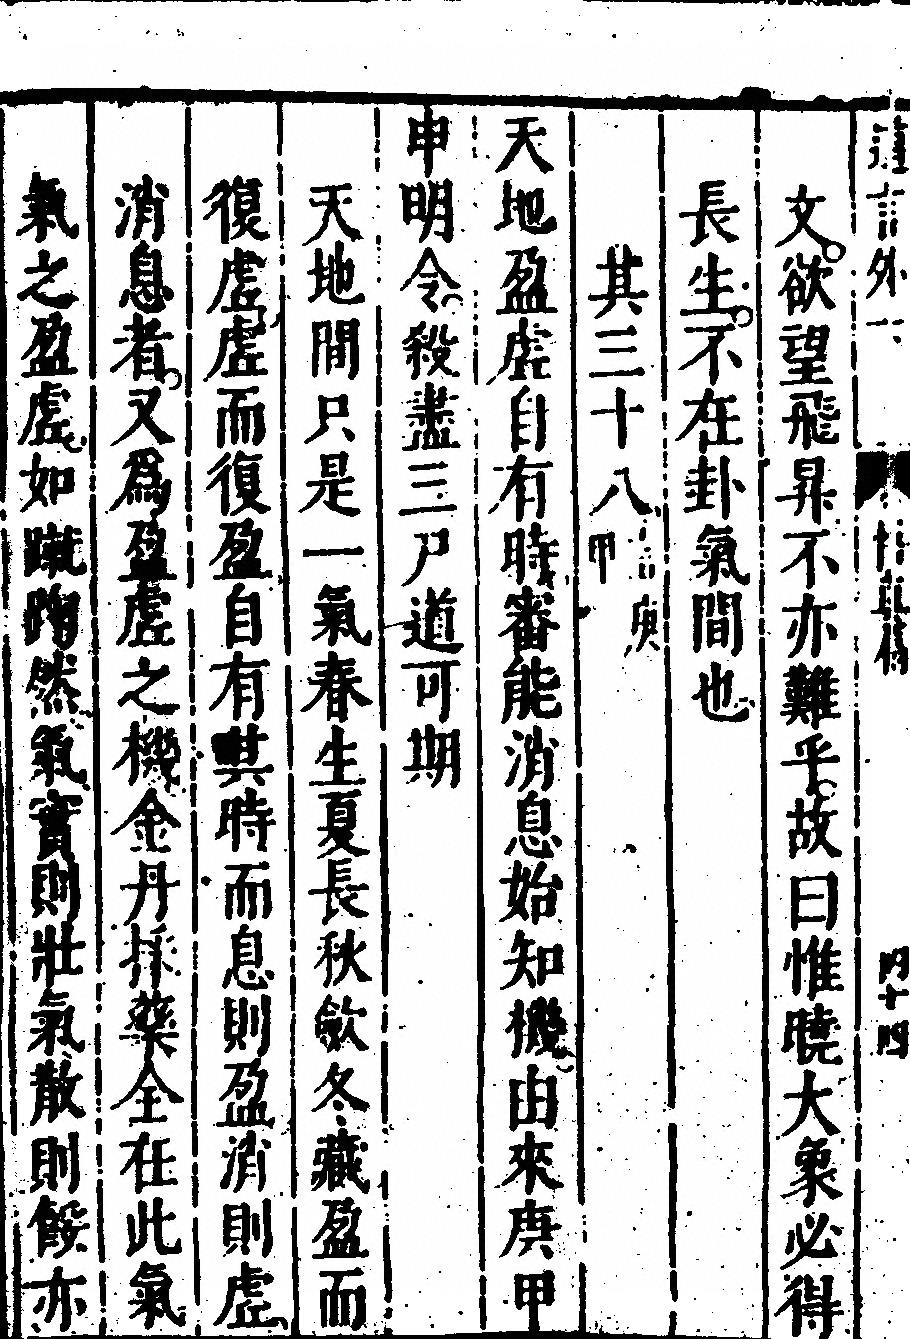 文欲望飛昇不亦難乎故曰惟曉大象必得
長生不在卦氣間也
其三十八
庚
甲
天地盈虗自有時審能消息始知機由來庚甲
申明令殺盡三尸道可期
天地間只是一氣春生夏長秋斂冬藏盈而
復虗虗而復盈自有其時而息則盈消則虗
消息者又爲盈虗之機金丹採藥全在此氣
氣之盈虗如蹴踘然氣實則壯氣散則餒亦